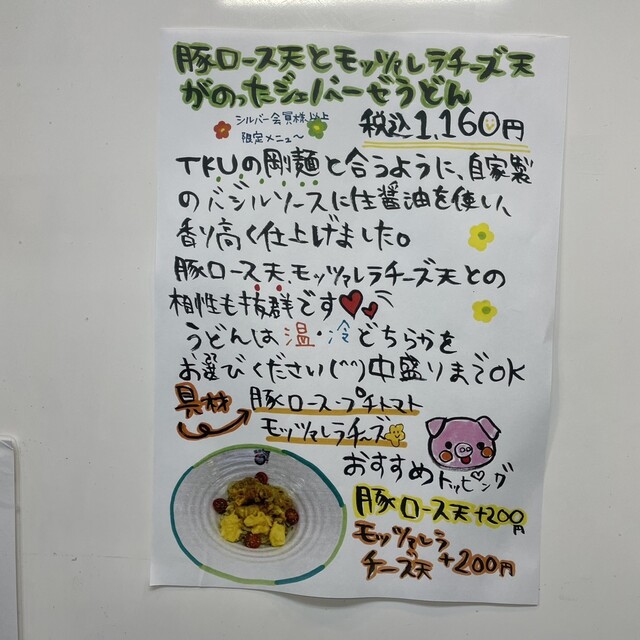 豚ロース天とモッツァレラチーズ天
がのったジェノバーゼうどん
シルバー会員様以上
限定メニュ〜
税込1,160円
TKUの剛麺と合うように、自家製
のバジルソースに生醤油を使い、
香り高く仕上げました。
豚ロース天、モッツァレラチーズ天との
相性も抜群です
うどんは温・冷どちらかを
お選びください(^^)中盛りまでOK
具材
豚ロース・プチトマト
モッツァレラチーズ
おすすめトッピング
豚ロース天+200円
モッツァレラ
チーズ天+200円